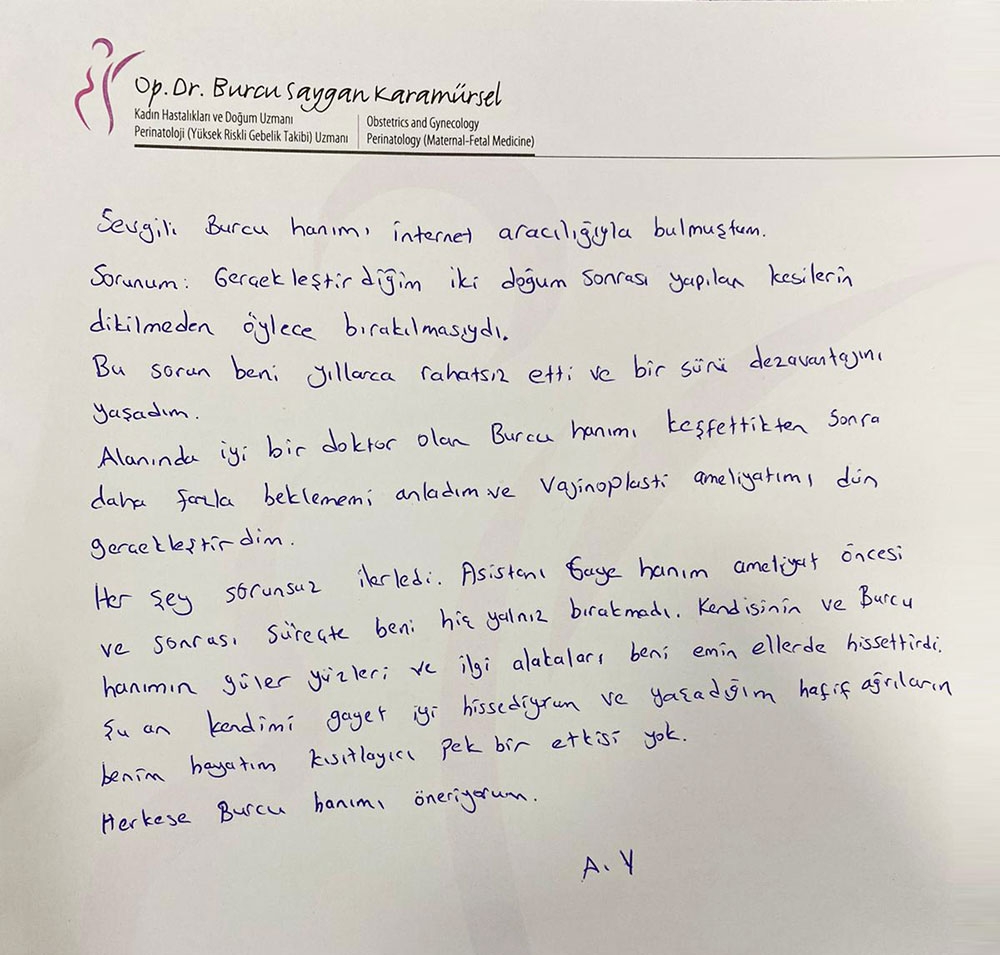 Op. Dr. Burcu Saygan Karamürsel
Kadın Hastalıkları ve Doğum Uzmanı
Perinatoloji (Yüksek Riskli Gebelik Takibi) Uzmanı
Obstetrics and Gynecology
Perinatology (Maternal-Fetal Medicine)
Sevgili Burcu hanımı internet aracılığıyla bulmuştum.
Sorunum: Gerçekleştirdiğim iki doğum sonrası yapılan kesilerin
dikilmeden öylece bırakılmasıydı.
Bu sorun beni yıllarca rahatsız etti ve bir sürü dezavantajını
yaşadım.
Alanında iyi bir doktor olan Burcu hanımı keşfettikten sonra
daha fazla beklememi anladım ve Vajinoplasti ameliyatımı dün
gerçekleştirdim.
Her şey sorunsuz ilerledi. Asistanı Gaye hanım ameliyat öncesi
ve sonrası süreçte beni hiç yalnız bırakmadı. Kendisinin ve Burcu
hanımın güler yüzleri ve ilgi alakaları beni emin ellerde hissettirdi.
Şu an kendimi gayet iyi hissediyrum ve yaşadığım hafif ağrıların
benim hayatım kısıtlayıcı pek bir etkisi yok.
Herkese Burcu hanımı öneriyorum.
A. Y